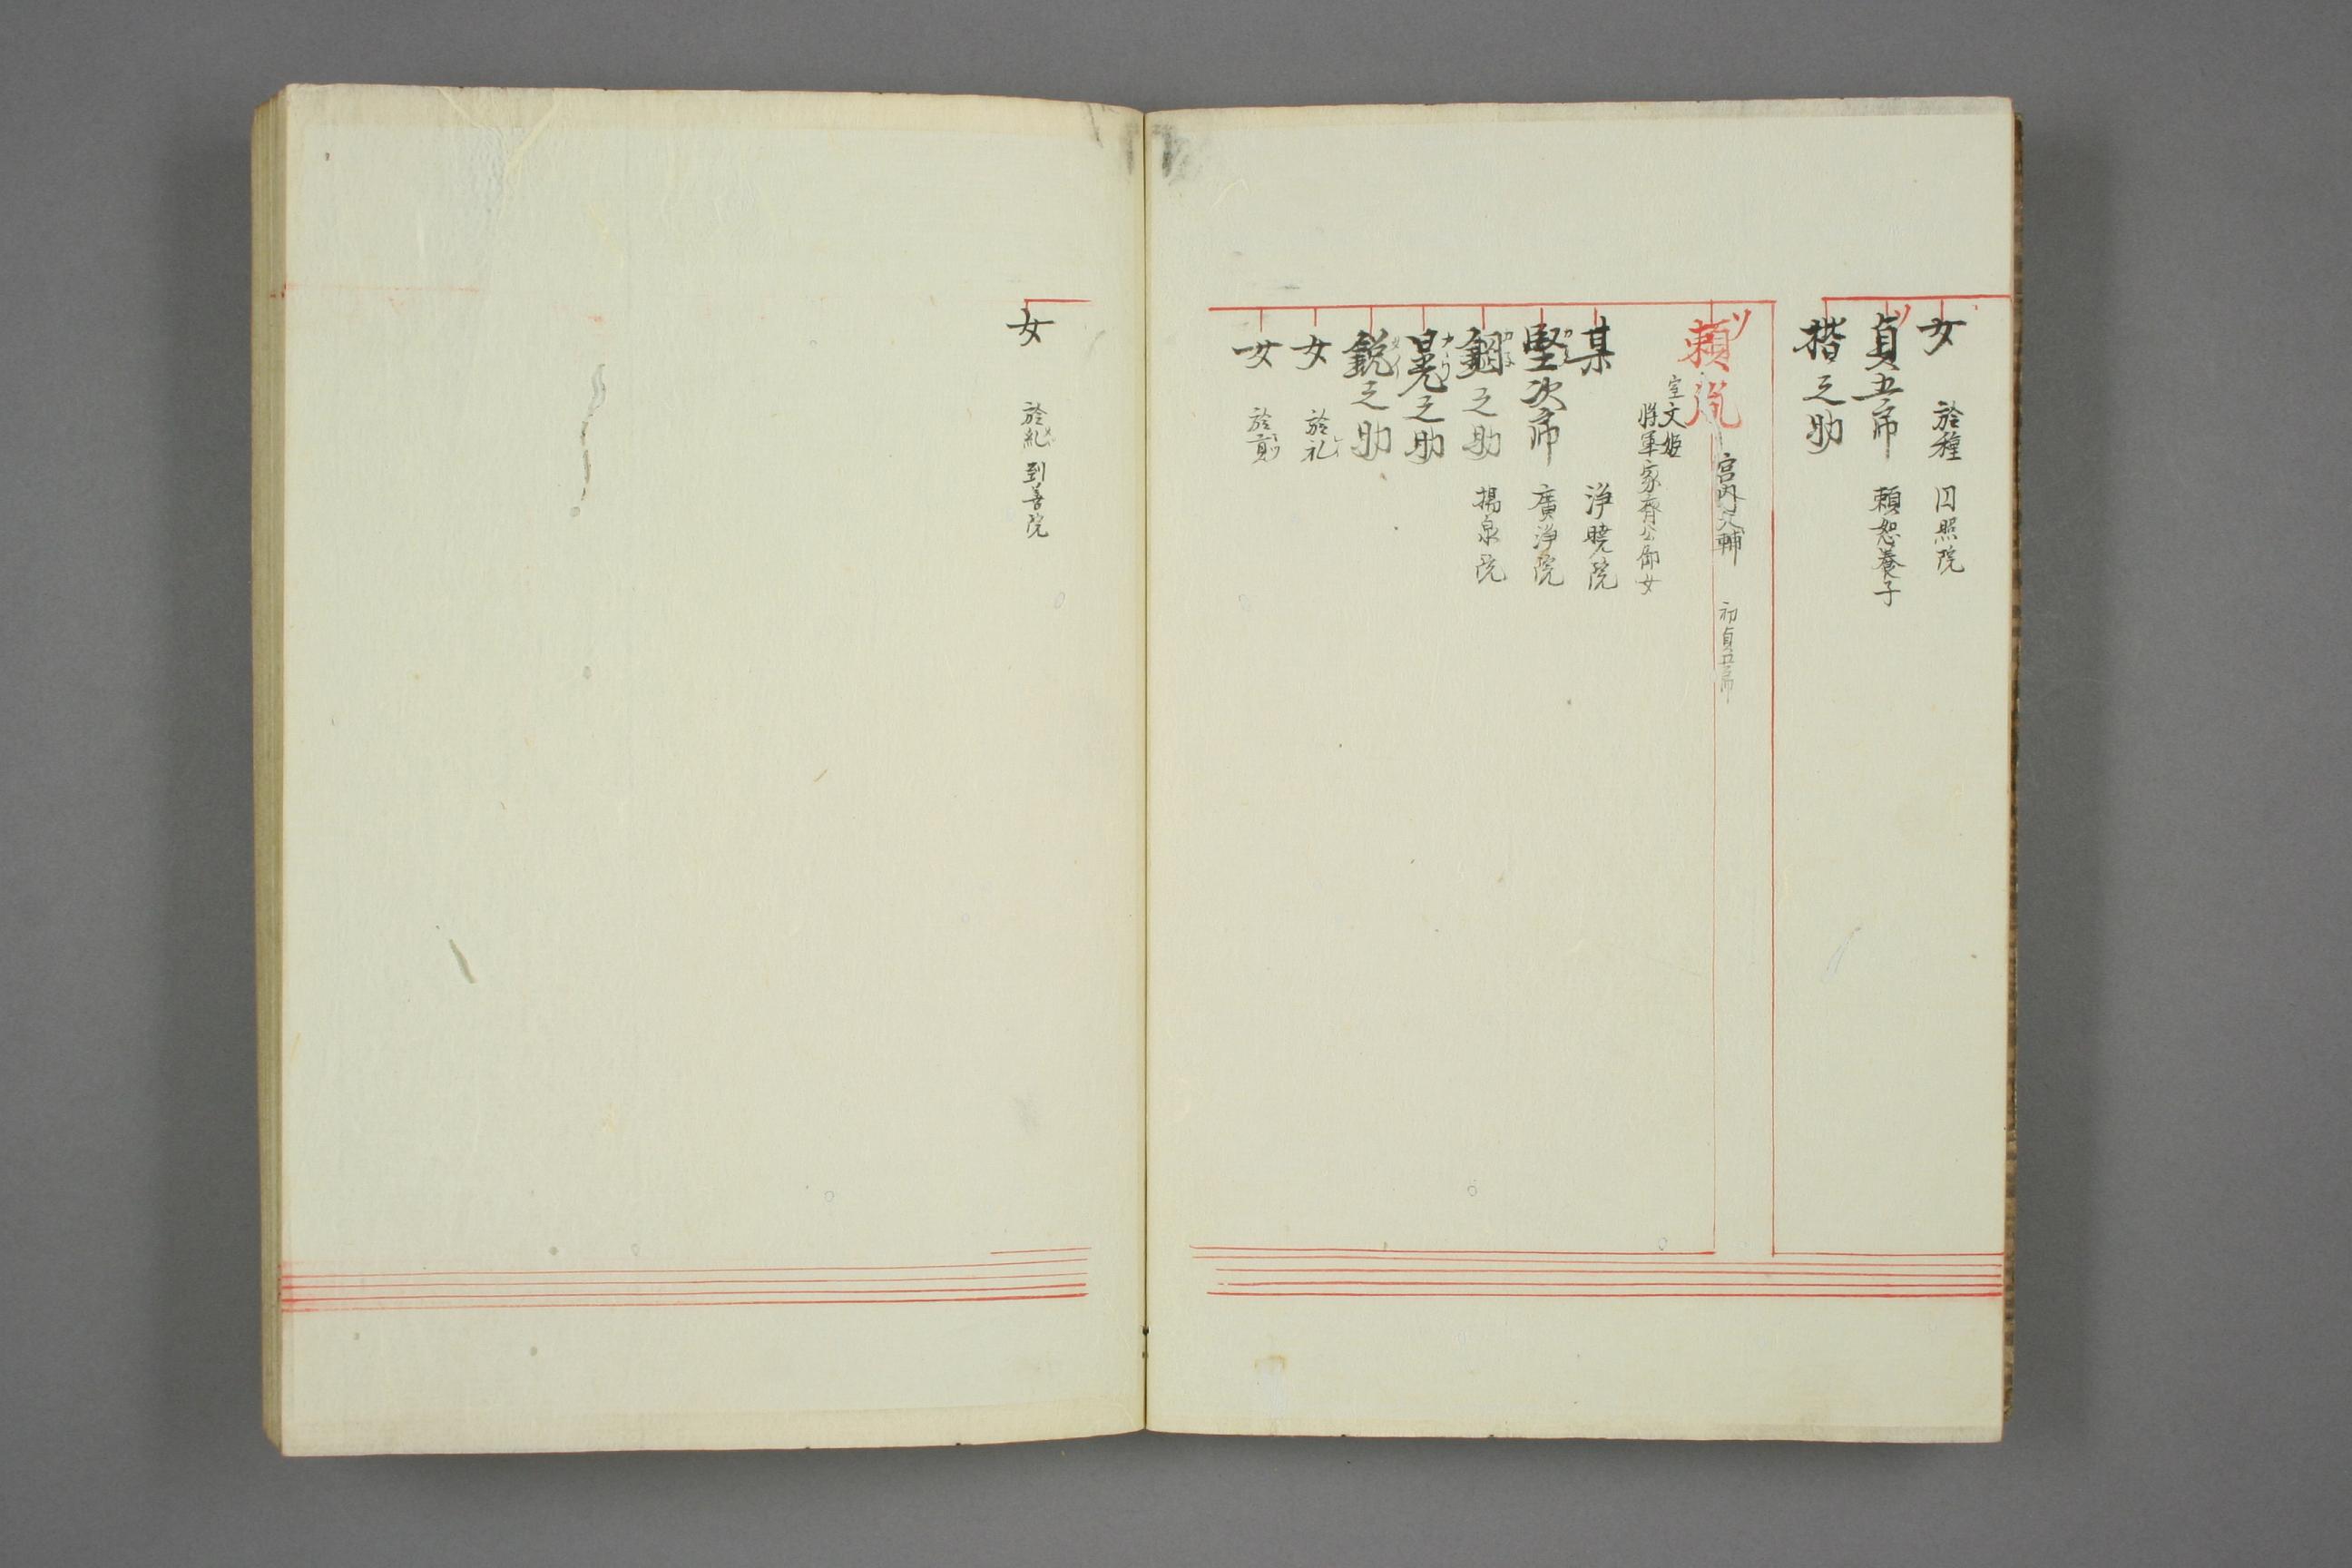 女 於種 囙照院
貞五郎 頼恕養子
揩之助
頼胤 宮内大輔 初貞五郎
室文姫
将軍家齊公御女
某 浄暁院
堅次郎 廣浄院
鋼之助 揚泉院
晃之助
鋭之助
女 於礼
女 於剪
女 於糺 到善院